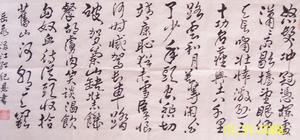 怒髮衝冠憑欄處
瀟瀟雨歇抬望眼仰
天長嘯壯懷激烈三
十功名塵與土八千里
路雲和月莫等閒白
了少年頭空悲切
靖康恥猶未雪臣恨
何時滅駕長車踏
破賀蘭山缺壯志饑
餐胡虜肉笑談渴飲
匈奴血待從頭收拾
舊山河朝天闕
岳飛滿江紅